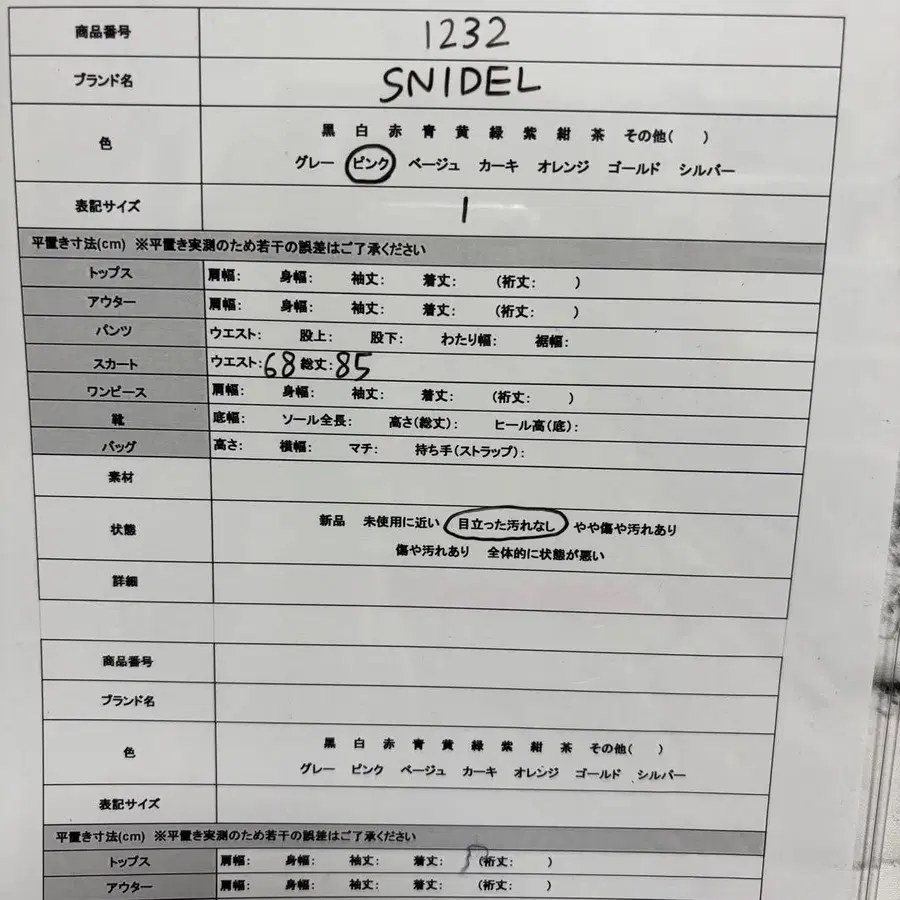 商品番号 1232
ブランド名 SNIDEL
色 黒 白 赤 青 黄 緑 紫 紺 茶 その他( )
グレー ピンク ベージュ カーキ オレンジ ゴールド シルバー
表記サイズ 1
平置き寸法(cm) ※平置き実測のため若干の誤差はご了承ください
トップス 肩幅: 身幅: 袖丈: 着丈: (裄丈: )
アウター 肩幅: 身幅: 袖丈: 着丈: (裄丈: )
パンツ ウエスト: 股上: 股下: わたり幅: 裾幅:
スカート ウエスト:68 総丈:85
ワンピース 肩幅: 身幅: 袖丈: 着丈: (裄丈: )
靴 底幅: ソール全長: 高さ(総丈): ヒール高(底):
バッグ 高さ: 横幅: マチ: 持ち手(ストラップ):
素材
状態 新品 未使用に近い 目立った汚れなし やや傷や汚れあり
傷や汚れあり 全体的に状態が悪い
詳細
商品番号
ブランド名
色 黒 白 赤 青 黄 緑 紫 紺 茶 その他( )
グレー ピンク ベージュ カーキ オレンジ ゴールド シルバー
表記サイズ
平置き寸法(cm) ※平置き実測のため若干の誤差はご了承ください
トップス 肩幅: 身幅: 袖丈: 着丈: (裄丈: )
アウター 肩幅: 身幅: 袖丈: 着丈: (裄丈: )